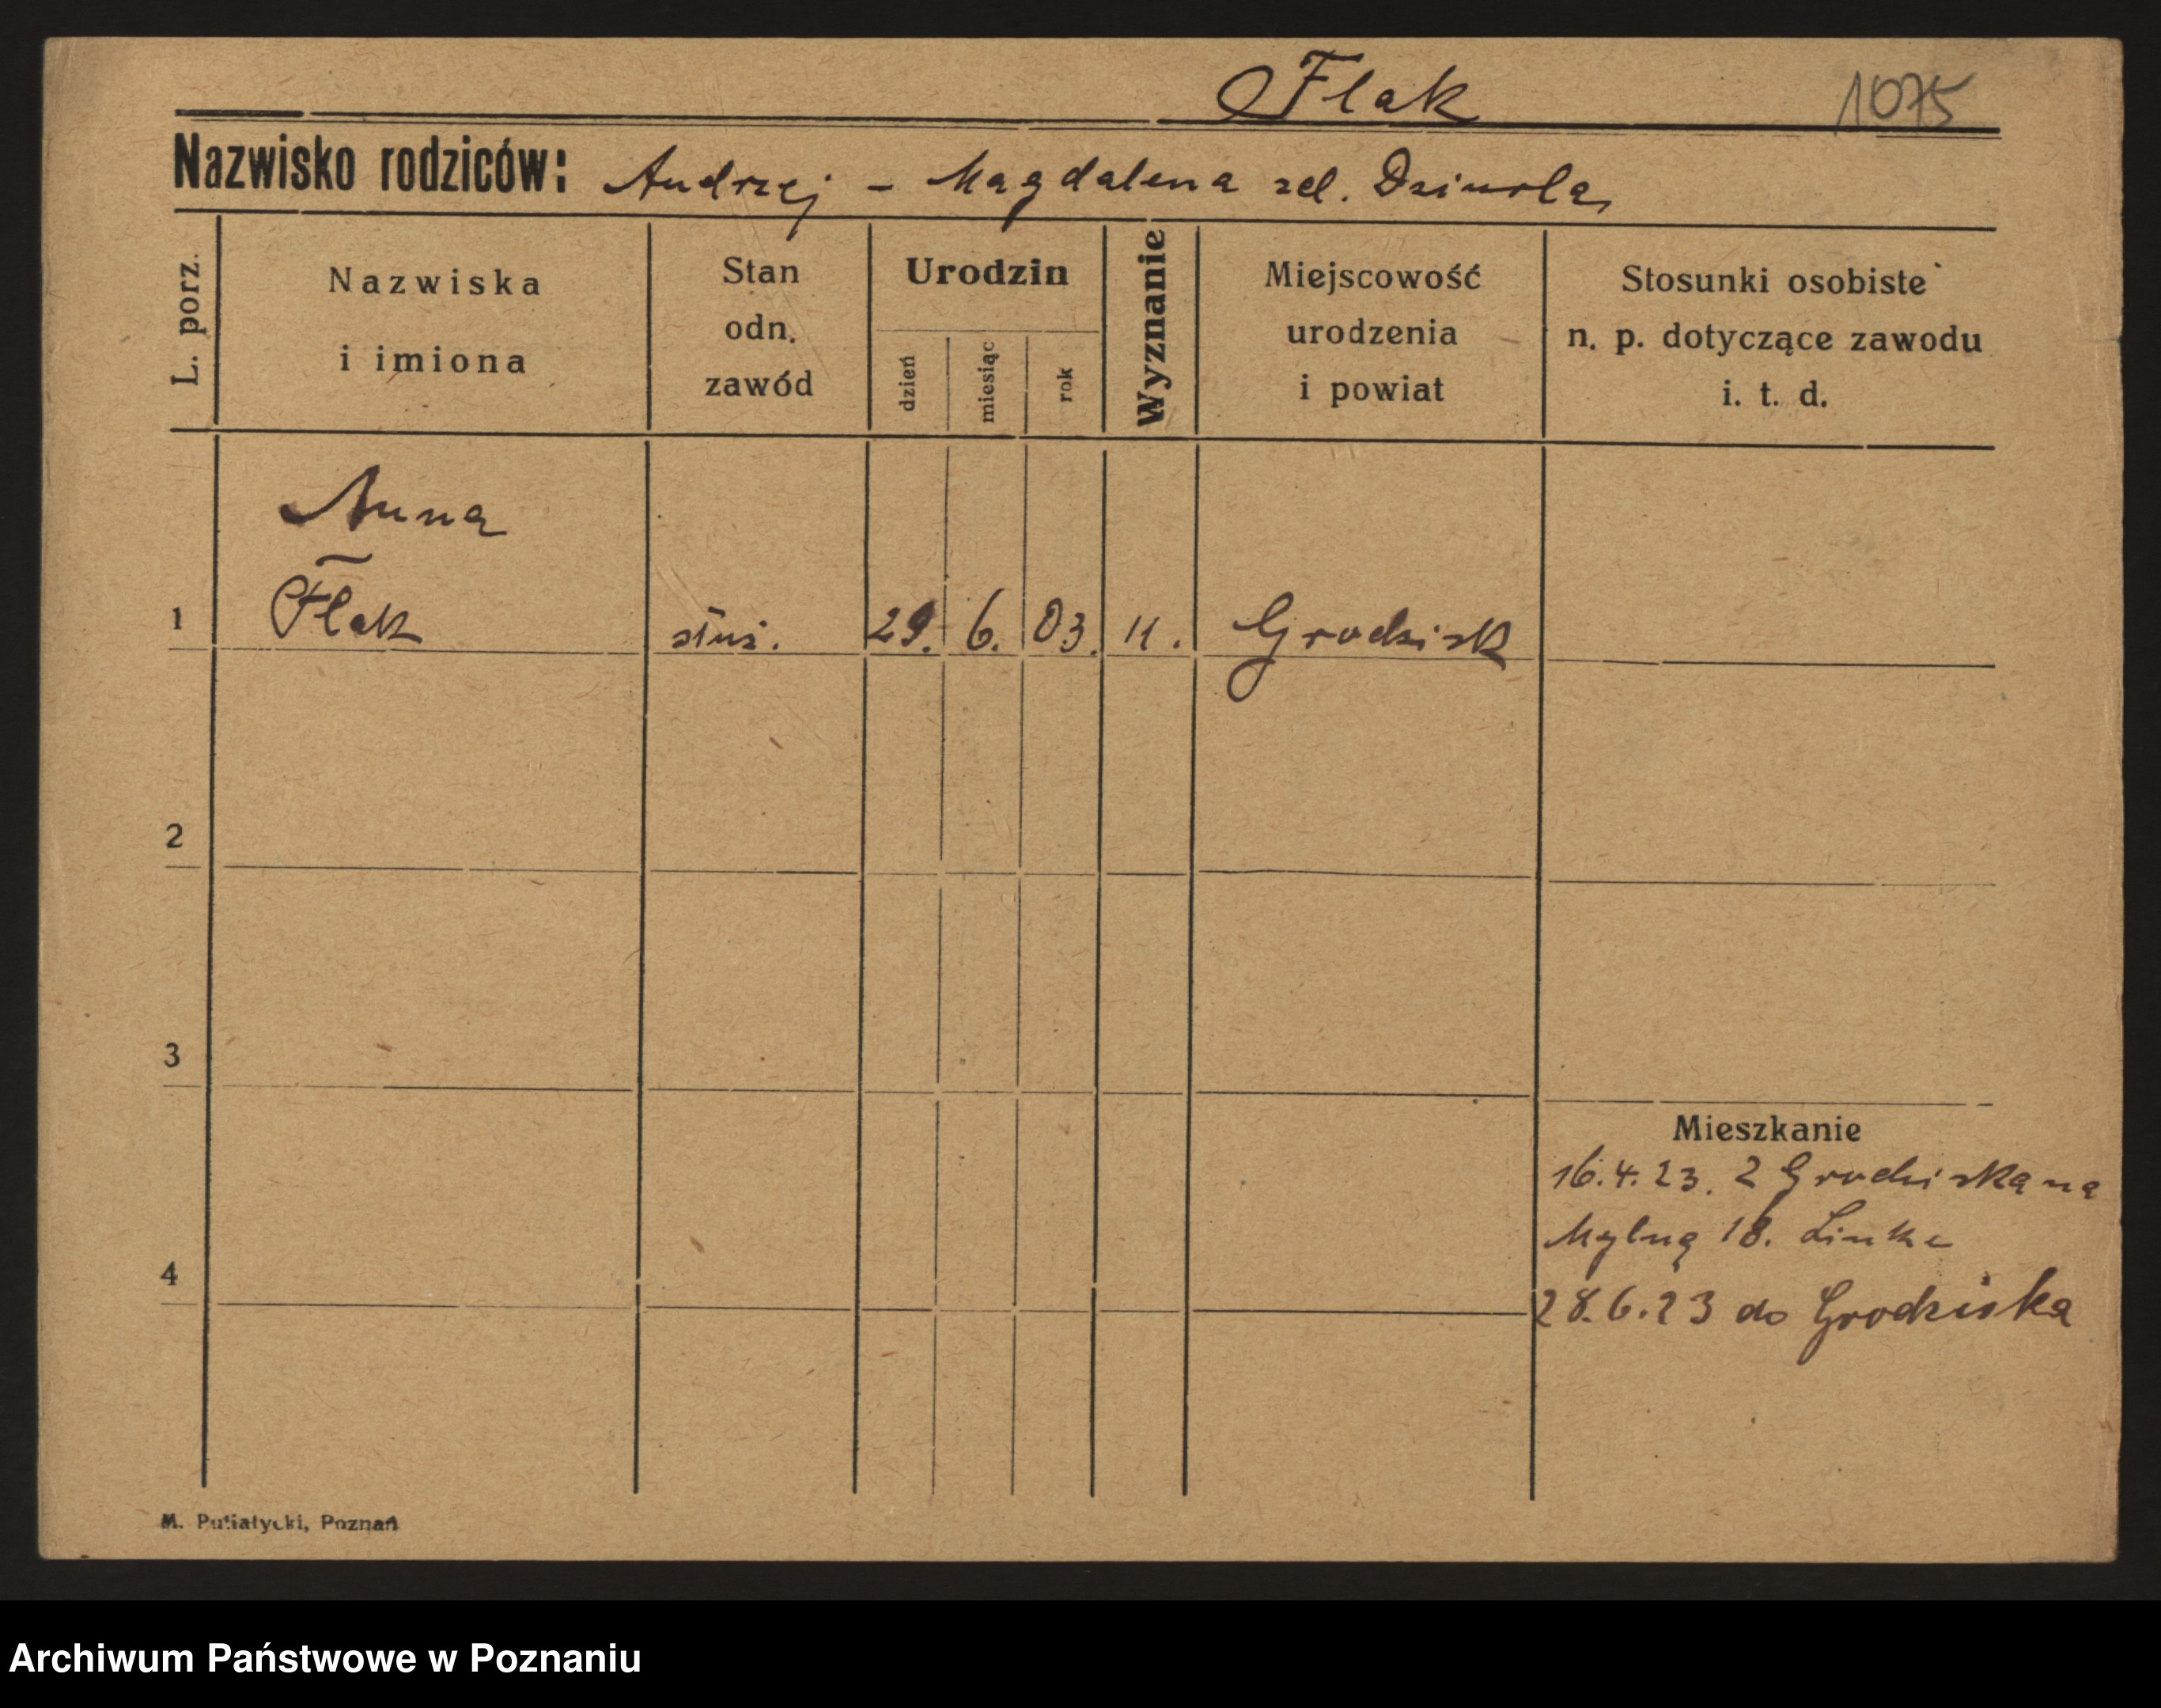 Flak 1075
Nazwisko rodziców: Andrzej - Magdalena zd.
L. porz.
Nazwiska
i imiona
Stan
odn.
zawód
Urodzin
dzień
miesiąc
rok
Wyznanie
Miejscowość
urodzenia
i powiat
Stosunki osobiste
n. p. dotyczące zawodu
i. t. d.
Anna
1 Flak służ. 29. 6. 03. k. Grodzisk
2
3
Mieszkanie
16.4.23. z Grodziska na
Mylną 18. Linke
4
28.6.23 do Grodziska
M. Putiatycki, Poznań
Archiwum Państwowe w Poznaniu